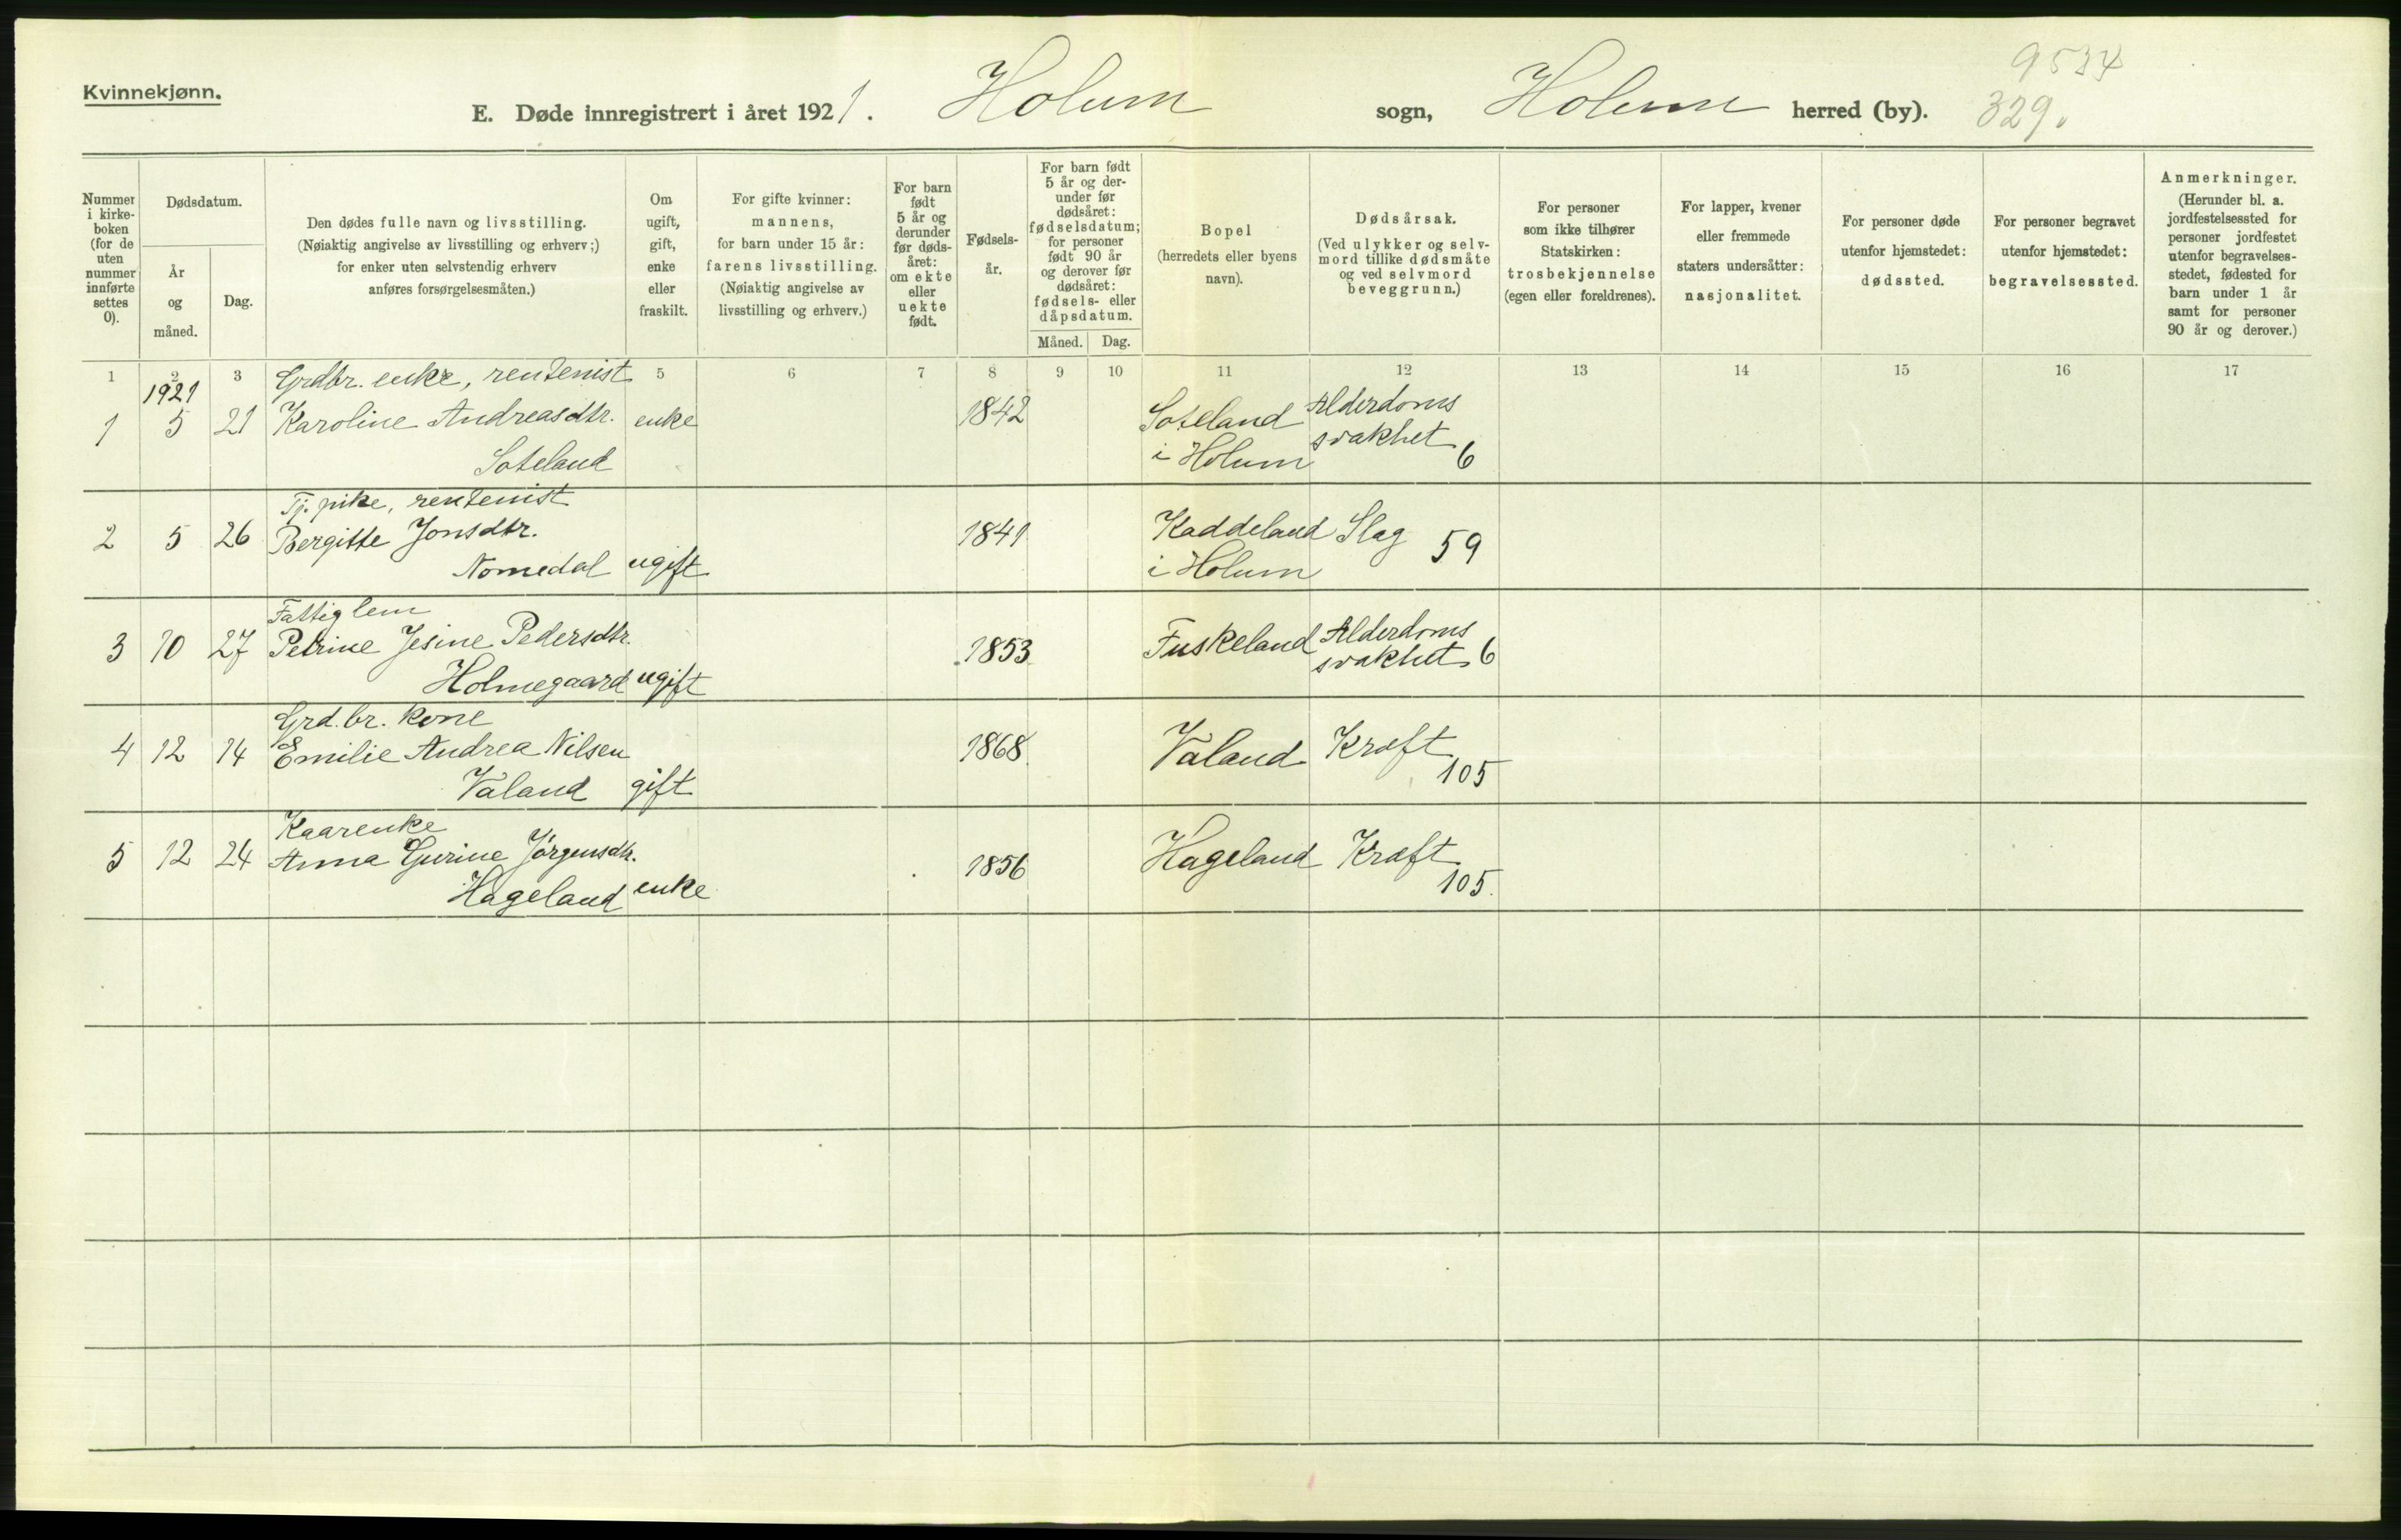 Kvinnekjønn.
E. Døde innregistrert i året 1921. Holum sogn, Holum herred (by).
9534
329.
Nummer i kirke-boken (for de uten nummer innførte settes 0).
Dødsdatum.
År og måned.
Dag.
Den dødes fulle navn og livsstilling.
(Nøiaktig angivelse av livsstilling og erhverv;)
for enker uten selvstendig erhverv
anføres forsørgelsesmåten.)
Om ugift, gift, enke eller fraskilt.
For gifte kvinner: mannens, for barn under 15 år: farens livsstilling. (Nøiaktig angivelse av livsstilling og erhverv.)
For barn født 5 år og derunder før døds-året: om ekte eller uekte født.
Fødsels-år.
For barn født 5 år og der-under før dødsåret: fødselsdatum; for personer født 90 år og derover før dødsåret: fødsels- eller dåpsdatum.
Måned. Dag.
Bopel (herredets eller byens navn).
Dødsårsak. (Ved ulykker og selv-mord tillike dødsmåte og ved selvmord beveggrunn.)
For personer som ikke tilhører Statskirken: trosbekjennelse (egen eller foreldrenes).
For lapper, kvener eller fremmede staters undersåtter: nasjonalitet.
For personer døde utenfor hjemstedet: dødssted.
For personer begravet utenfor hjemstedet: begravelsessted.
Anmerkninger. (Herunder bl. a. jordfestelsessted for personer jordfestet utenfor begravelses-stedet, fødested for barn under 1 år samt for personer 90 år og derover.)
1 2 3 5 6 7 8 9 10 11 12 13 14 15 16 17
1921 Grdbr. enke, rentenist
1 5 21 Karoline Andreasdtr. enke 1842 Soteland Alderdoms
Soteland i Holum svakhet 6
Tj. pike, rentenist
2 5 26 Bergitte Jonsdtr. 1841 Kaddeland Slag 59
Nomedal ugift i Holum
Fattiglem
3 10 27 Petrine Jesine Pedersdtr. 1853 Fuskeland Alderdoms
Holmegaard ugift svakhet 6
Grd. br. kone
4 12 14 Emilie Andrea Nilsen 1868 Valand Kræft
Valand gift 105
Kaarenke
5 12 24 Anna Gurine Jørgensdtr. 1856 Hageland Kræft
Hageland enke 105.